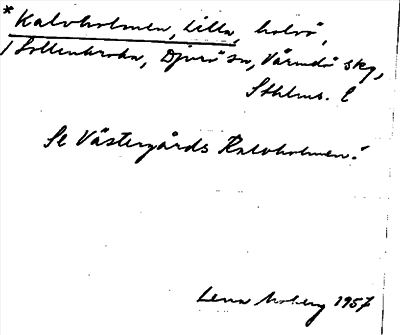 * Kalvholmen, Lilla, holvö,
/ Sollenkroka, Djurö sn, Värmdö skg,
Sthlms. l
Se Västergårds Kalvholmen!
Lena Moberg 1957